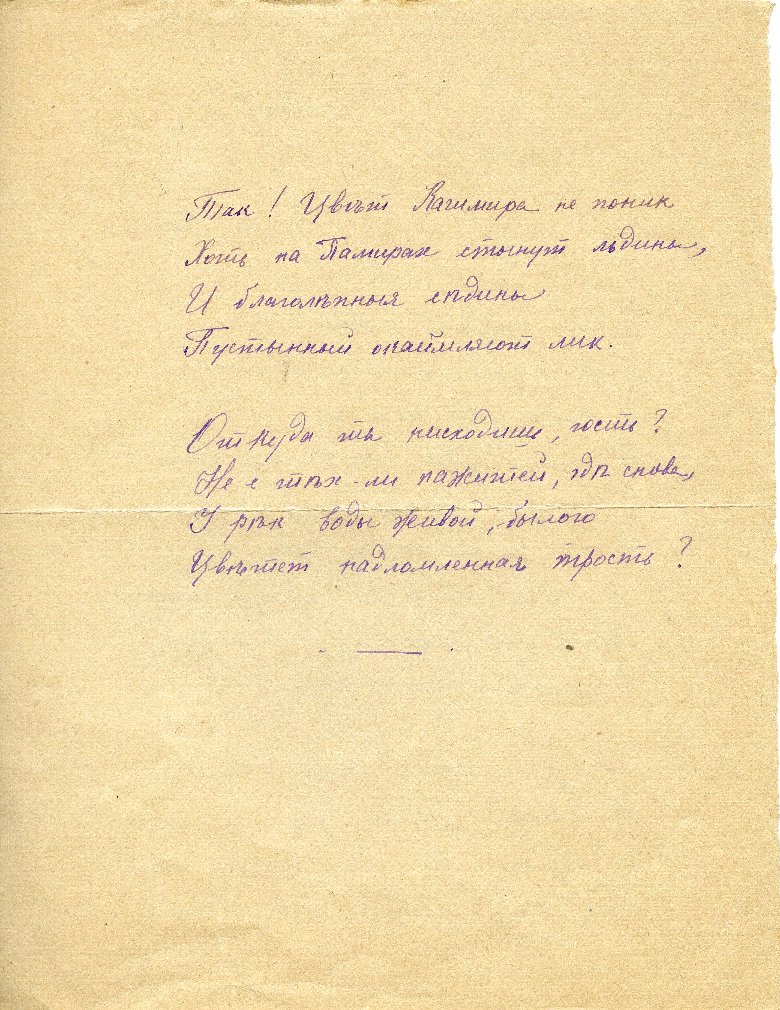 Так! Цвѣт Кашмира не поник
Хоть на Памирах стынут льдины,
И благолѣпныя сѣдины
Пустынный окаймляют лик.
Откуда ты нисходишь, гость?
Не с тѣх-ли пажитей, гдѣ снова,
У рѣк воды живой, былого
Цвѣтет надломленная трость?